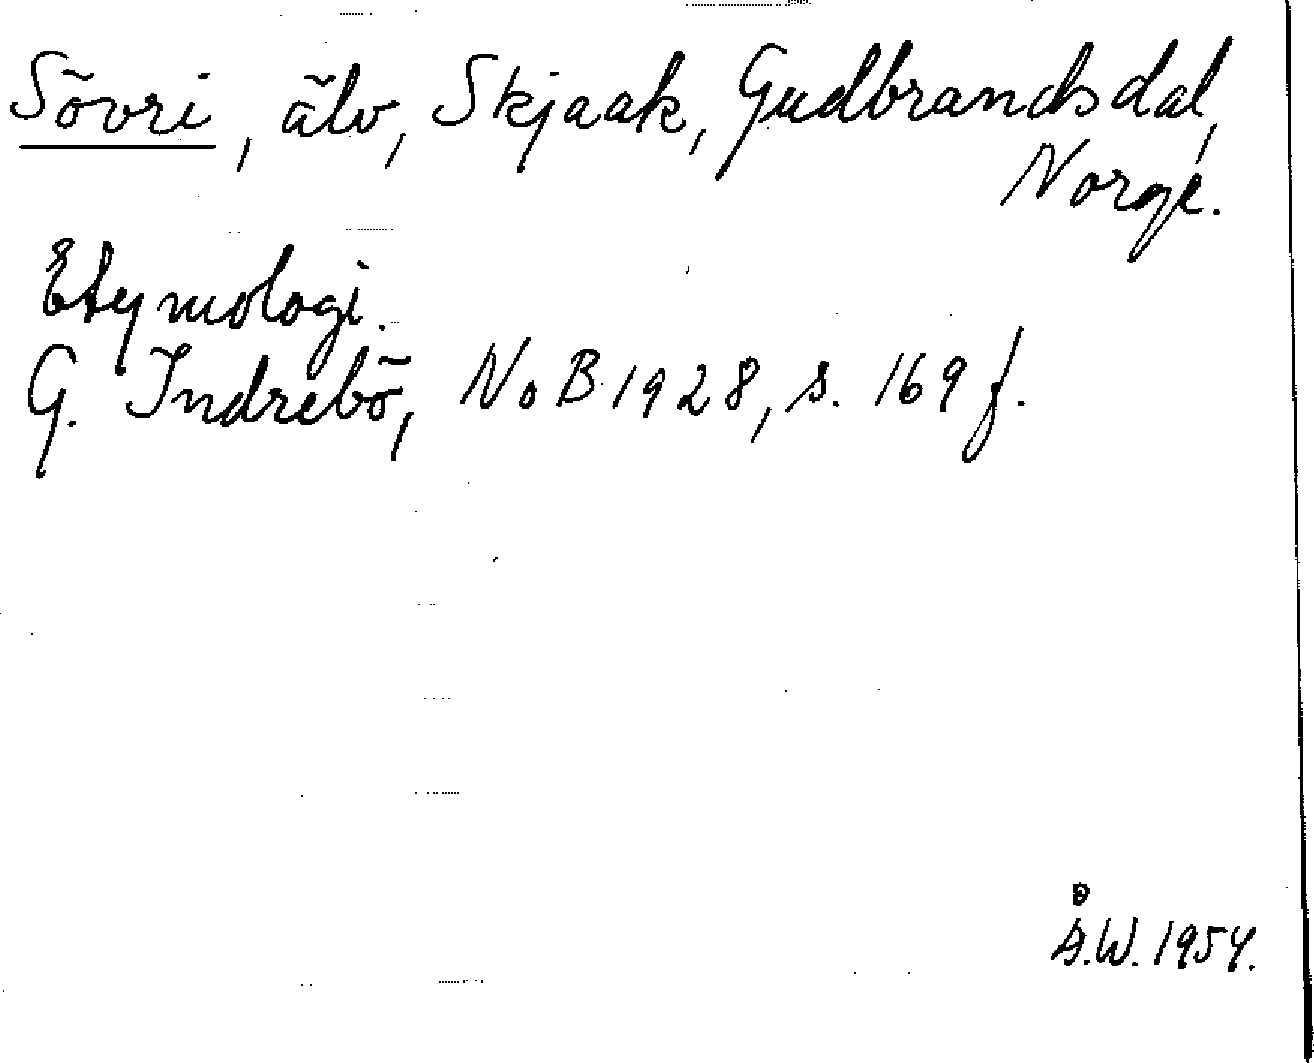 Sövri, älv, Skjaak, Gudbrandsdal,
Norge.
Etymologi.
G. Indrebö, NoB 1928, s. 169 f.
Å.W. 1954.